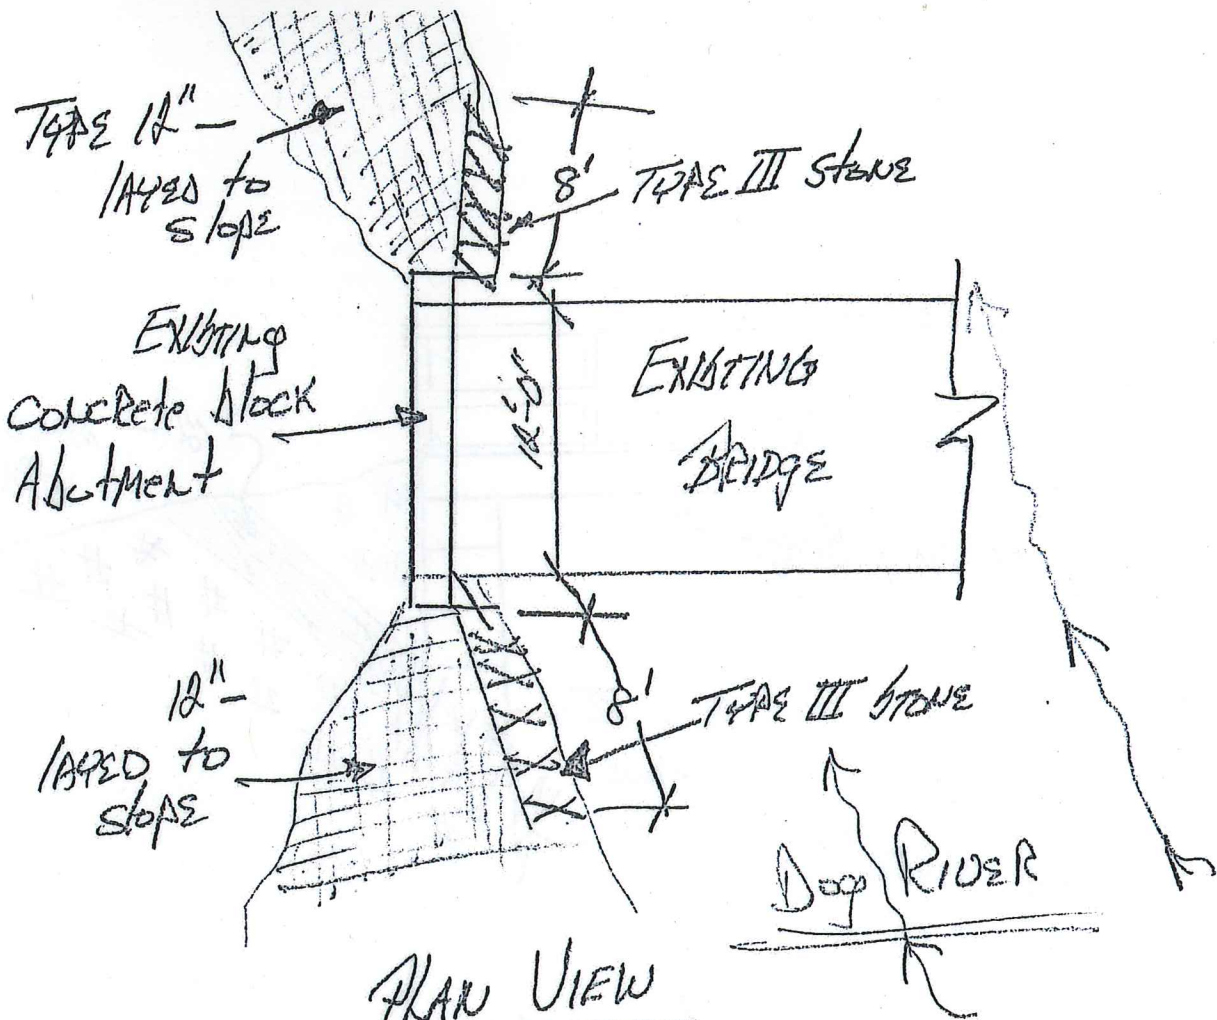 TYPE 12" -
LAYED to
SLOPE
8'
TYPE III STONE
EXISTING
CONCRETE BLOCK
ABUTMENT
12'-0"
EXISTING
BRIDGE
12" -
LAYED to
SLOPE
8'
TYPE III STONE
Dog RIVER
PLAN VIEW